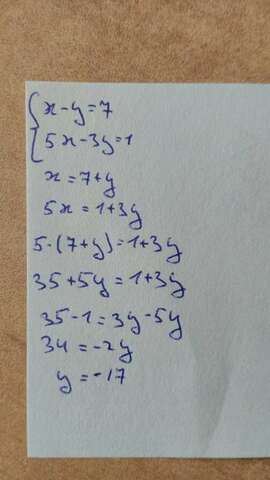 x-y=7
5x-3y=1
x=7+y
5x=1+3y
5·(7+y)=1+3y
35+5y=1+3y
35-1=3y-5y
34=-2y
y=-17